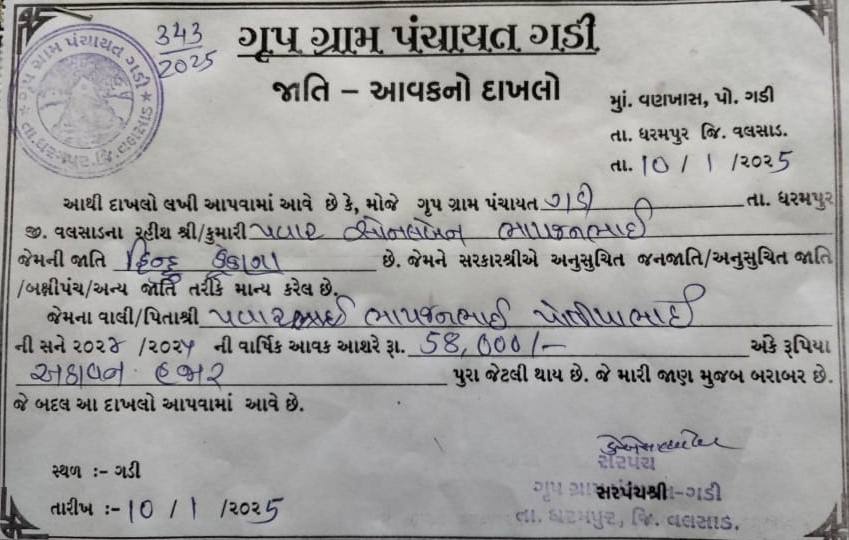 ગૃપ ગ્રામ પંચાયત ગડી
તા. ધરમપુર, જિ. વલસાડ
343
2025
ગૃપ ગ્રામ પંચાયત ગડી
જાતિ – આવકનો દાખલો
મું. વણખાસ, પો. ગડી
તા. ધરમપુર જિ. વલસાડ.
તા. 10 / 1 / ૨૦૨5
આથી દાખલો લખી આપવામાં આવે છે કે, મોજે ગૃપ ગ્રામ પંચાયત ગડી તા. ધરમપુર
જી. વલસાડના રહીશ શ્રી/કુમારી પવાર સોનલબેન
જેમની જાતિ હિન્દુ કુકણા છે. જેમને સરકારશ્રીએ અનુસુચિત જનજાતિ/અનુસુચિત જાતિ
/બક્ષીપંચ/અન્ય જાતિ તરીકે માન્ય કરેલ છે.
જેમના વાલી/પિતાશ્રી
ની સને ૨૦૨૪ /૨૦૨૫ ની વાર્ષિક આવક આશરે રૂા. 58,000/- અંકે રૂપિયા
અઠાવન હજાર પુરા જેટલી થાય છે. જે મારી જાણ મુજબ બરાબર છે.
જે બદલ આ દાખલો આપવામાં આવે છે.
સ્થળ :- ગડી
તારીખ :- 10 / 1 / ૨૦૨5
સરપંચ
સરપંચશ્રી
ગૃપ ગ્રામ પંચાયત-ગડી
તા. ધરમપુર, જિ. વલસાડ.